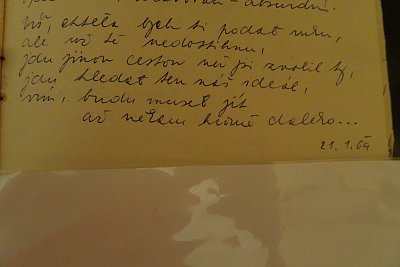 absurdní.
Víš, chtěla bych ti podat ruku,
ale už tě nedostihnu,
jdu jinou cestou než jsi zvolil ty,
jdu hledat ten náš ideál,
vím, budu muset jít
až někam hodně daleko...
21.1.69